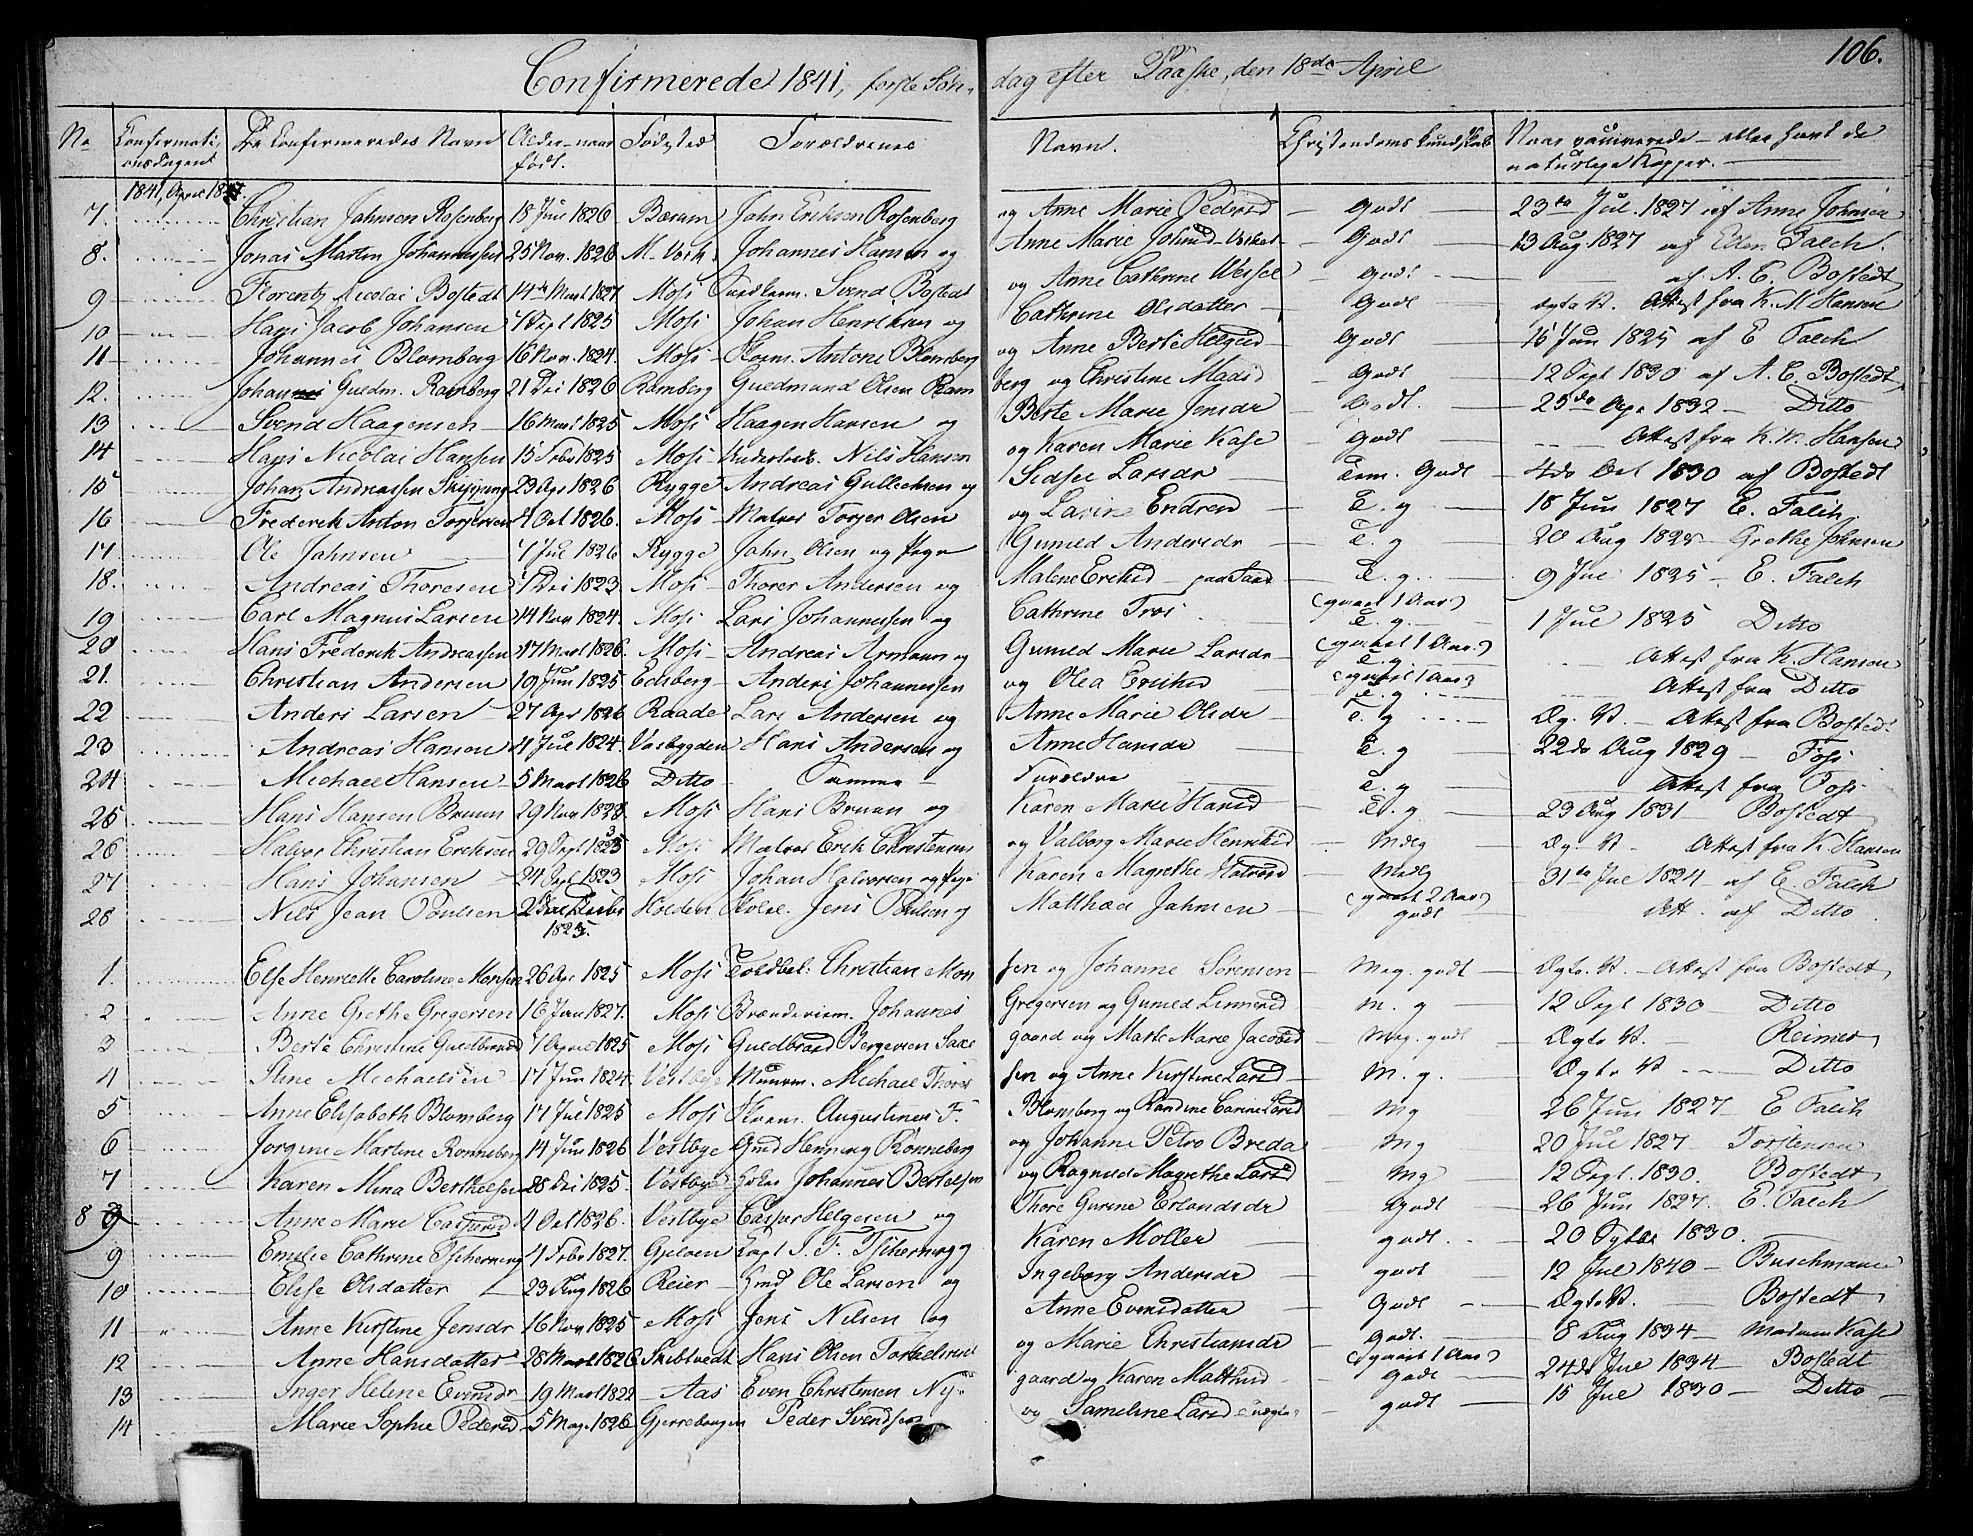 106.
Confirmerede 1841, første Søn- dag efter Paaske, den 18de April
No Confirmati- onsdagens De Confirmeredes Navn Alder naar født. Fødsted Forældrenes Navn. Christendoms kundskab Naar vaccinerede eller havt de naturlige Kopper.
1841, April 18
7. Christian Jahnsen Rosenberg 18 Juni 1826 Bærum Jahn Eriksen Rosenberg og Anne Marie Pedersd Godt 23de Jul. 1827 af Anne Johnsen
8. Jonas Martin Johannessen 25 Nov. 1826 M. Verk Johannes Hansen og Anne Marie Johnsd Godt 13 Aug 1827 af Eden Falch.
9 Florentz Nicolai Bostedt 14de Mart 1827 Moss Svend Bostedt og Anne Cathrine Wessel Godt af A. E. Bostedt
10 Hans Jacob Johansen 7 Sept 1825 Moss Johan Henriksen og Cathrine Olsdatter Godt Attest fra K. M Hansen
11 Johannes Blomberg 16 Nov. 1824. Moss Skom. Antoni Blomberg og Anne Berte Helgesd Godt 16 Jun 1825 af E Falch
12. Johannes Guldm. Ramberg 21 Dec 1826 Ramberg Guldmund Olsen Ram berg og Christine Madsd Godt 12 Sept 1830 af A. E. Bostedt
13 Svend Haagensen 16 Mart 1825 Moss Haagen Hansen og Berte Marie Jensdr Godt. 25de Apr 1832 Ditto
14 Hans Nicolai Hansen 15 Febr 1825 Moss Nils Hansen og Karen Marie Kase Godt Attest fra K. M. Hansen
15 Johan Andreassen 23 Apr 1826 Rygge Andreas Gullichsen og Sidse Larsdr Tem. Godt 4de Oct 1830 af Bostedt
16 Frederik Anton Torjersen 4 Oct 1826. Moss Matros Torjer Olsen og Larine Endresd T. g 18 Jun 1827 E. Falch
17 Ole Jahnsen 7 Jul 1826 Rygge Jahn Olsen og Pige Gunild Andersdr T. g 20 Aug 1828 Grethe Johnsen
18. Andreas Thoresen 1 Dec 1823 Moss Thorer Andersen og Malene Ericksd T. g. 9 Jul 1825 E. Falch
19 Carl Magnus Larsen 14 Nov 1824. Moss Lars Johannessen og Cathrine (gaaet 1 Aar) T. g. 1 Jul 1825 Ditto
20 Hans Frederik Andreassen 17 Mart 1826. Moss Andreas Armann og Gunild Marie Larsdr (gaaet 1 Aar) T. g. Attest fra K. Hansen
21. Christian Andersen 19 Jun 1825 Edsberg Anders Johannessen og Olea Ericksd (gaaet 1 Aar) T. g Attest fra Ditto
22 Anders Larsen 27 Apr 1826 Raade Lars Andersen og Anne Marie Olsdr T. g Dg. V. Attest fra Bostedt
23 Andreas Hansen 4 Jul 1824. Vasbygden Hans Andersen og Anne Hansdr T. g 22de Aug 1829 Foss
24 Michael Hansen 5 Mart 1826 Ditto Samme Forældre T. g Attest fra Foss
25 Hans Hansen Bruun 29 Nov 1823 Moss Hans Bruun og Karen Marie Hansd T. g 23 Aug 1831 Bostedt
26 Halvor Christian Ericksen 29 Sept 1825 Moss Matros Erick Christensen og Valborg Marie Henriksd Mdlg Dg. V. Attest fra K Hansen
27 Hans Johansen 24 Sept 1823 Moss Johan Halvorsen og Pige Karen Magrethe Halvorsd Mdlg 31de Jul 1824 af E. Falch
28 Nils Jean Poulsen 1825. Holden Jens Poulsen og Matthea Jahnsen (gaaet 2 Aar) godt Att. af Ditto
1. Else Henriette Caroline Monsen 26 Apr 1825 Moss Toldbet: Christian Mon sen og Johanne Sørensen Meg. godt Dgtr. V. Attest fra Bostedt
2 Anne Grethe Gregersen 16 Jan 1827. Moss Brænderiem. Johannes Gregersen og Gunild M. g 12 Sept 1830 Ditto
3 Berte Christine Guldbrandsd 7 April 1825 Moss Guldbrand Bergersen Saxe gaard og Marte Marie Jacobsd Meg. godt Dgtr V. Reimers
4 Stine Michaelsen 17 Jun 1824. Vestbye Muurm. Michael Thores sen og Anne Kirstine Larsd M. g. Dgtr V Ditto
5 Anne Elisabeth Blomberg 17 Jul 1825 Moss Skom. Augustinus F. Blomberg og Randine Carine Larsd Mg 26 Jun 1827 E Falch
6 Jorgine Martine Rønneberg 14 Jun 1826 Vestbye Gmd Henning Rønneberg og Johanne Petro Breda Mg 20 Jul 1827 Torstensen
7 Karen Mina Berthelsen 28 Dec 1825. Vestbye Johannes Bertelsen og Ragnild Magrethe Larsd Mg 12 Sept. 1830. Bostedt
8 Anne Marie Caspersd 4 Oct 1826. Vestbye Casper Helgesen og Thore Gurine Erlandsdr Godt 26 Jun 1827. E. Falch
9 Emilie Cathrine Tscherning 4 Febr 1827. Capt J. F. Tscherning og Karen Møller godt 20 Sptbr 1830.
10 Elise Olsdatter 23 Aug 1826 Reier Gmd Ole Larsen og Ingeborg Andersdr godt 12 Jul 1840 Buschmann
11 Anne Kirstine Jensdr 16 Nov 1825 Moss Jens Nilsen og Anne Evensdatter Godt Dgtr V. Bostedt
12 Anne Hansdatter 28 Mart 1826 Skibtvedt Hans Olsen og Marie Christiansdr Godt. 8 Aug 1834 Madam Kase
13 Inger Helene Evensdr 19 Mart 1822 Aas Even Christensen Ny- gaard og Karen Matthisd (gaaet 1 Aar) Godt 24de Jul 1834 Bostedt
14 Marie Sophie Pedersd 5 Mag. 1826 Gjerrebougen Peder Svendsen og Sameline Larsd godt 15 Jul 1830 Ditto